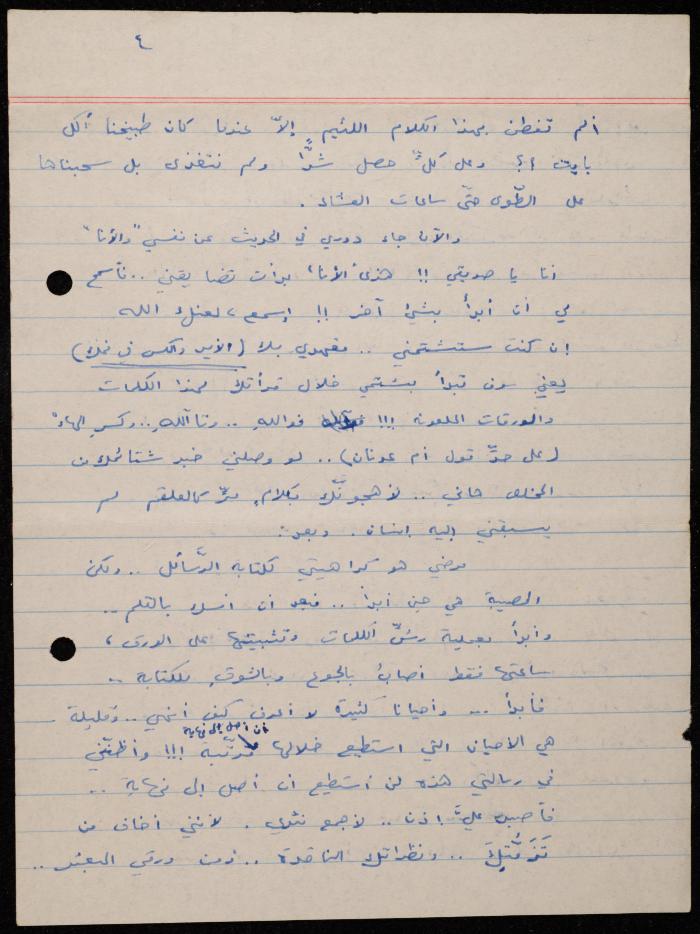 ٤
ألم تفطن بهذا الكلام اللئيم إلاّ عندما كان طبيخنا أكل
بايت ؟! وعلى كلٍّ حصل شرًّا ولم نتغذى بل سحبناها
على الطّوى حتّى ساعات العشاء .
والآن جاء دوري في الحديث عن نفسي "والأنا"
أنا يا صديقي !! هذى "الأنا" بدأت تضايقني .. فأسمح
لي أن أبدأ بشيء آخر !! إسمع ، لعنك الله
إن كنت ستشتمني .. فعهدي بك (الأير والكس في فمك)
يعني سوف تبدأ بشتمي خلال قرأتك لهذا الكلمات
والورقات الملعونه !!! فواللهِ .. وتاآللهِ .. وكسرِ الهاء"
(على حدِّ قول أم عدنان) .. لو وصلني خبر شتائمك من
المخلص هاني .. لأهجونّك بكلامٍ مرٍّ كالعلقم لم
يسبقني إليه إنسان . وبعد :
مرضي هو كراهيتي لكتابة الرّسائل .. ولكن
المصيبة هي حين أبدأ .. فبعد أن أمسك بالقلم ..
وأبدأ بعملية رسّ الكلمات وتثبيتها على الورق ،
ساعتها فقط أصابُ بالجوع وبالشوق للكتابة ..
فأبدأ ... وأحيانا كثيرة لا أعرف كيف أنتهي .. وقليلة
هي الأحيان التي استطيع خلالها أن أصل إلى نهاية مرتّبة !!! وأظنّني
في رسالتي هذه لن أستطيع أن أصل إلى نهاية ..
فأصبر عليّ إذن .. لأجمع نثري . لأنني أخاف من
تَزَمُّتِكَ .. ونظراتك الناقدة .. ذون ورقي المبعثر ..